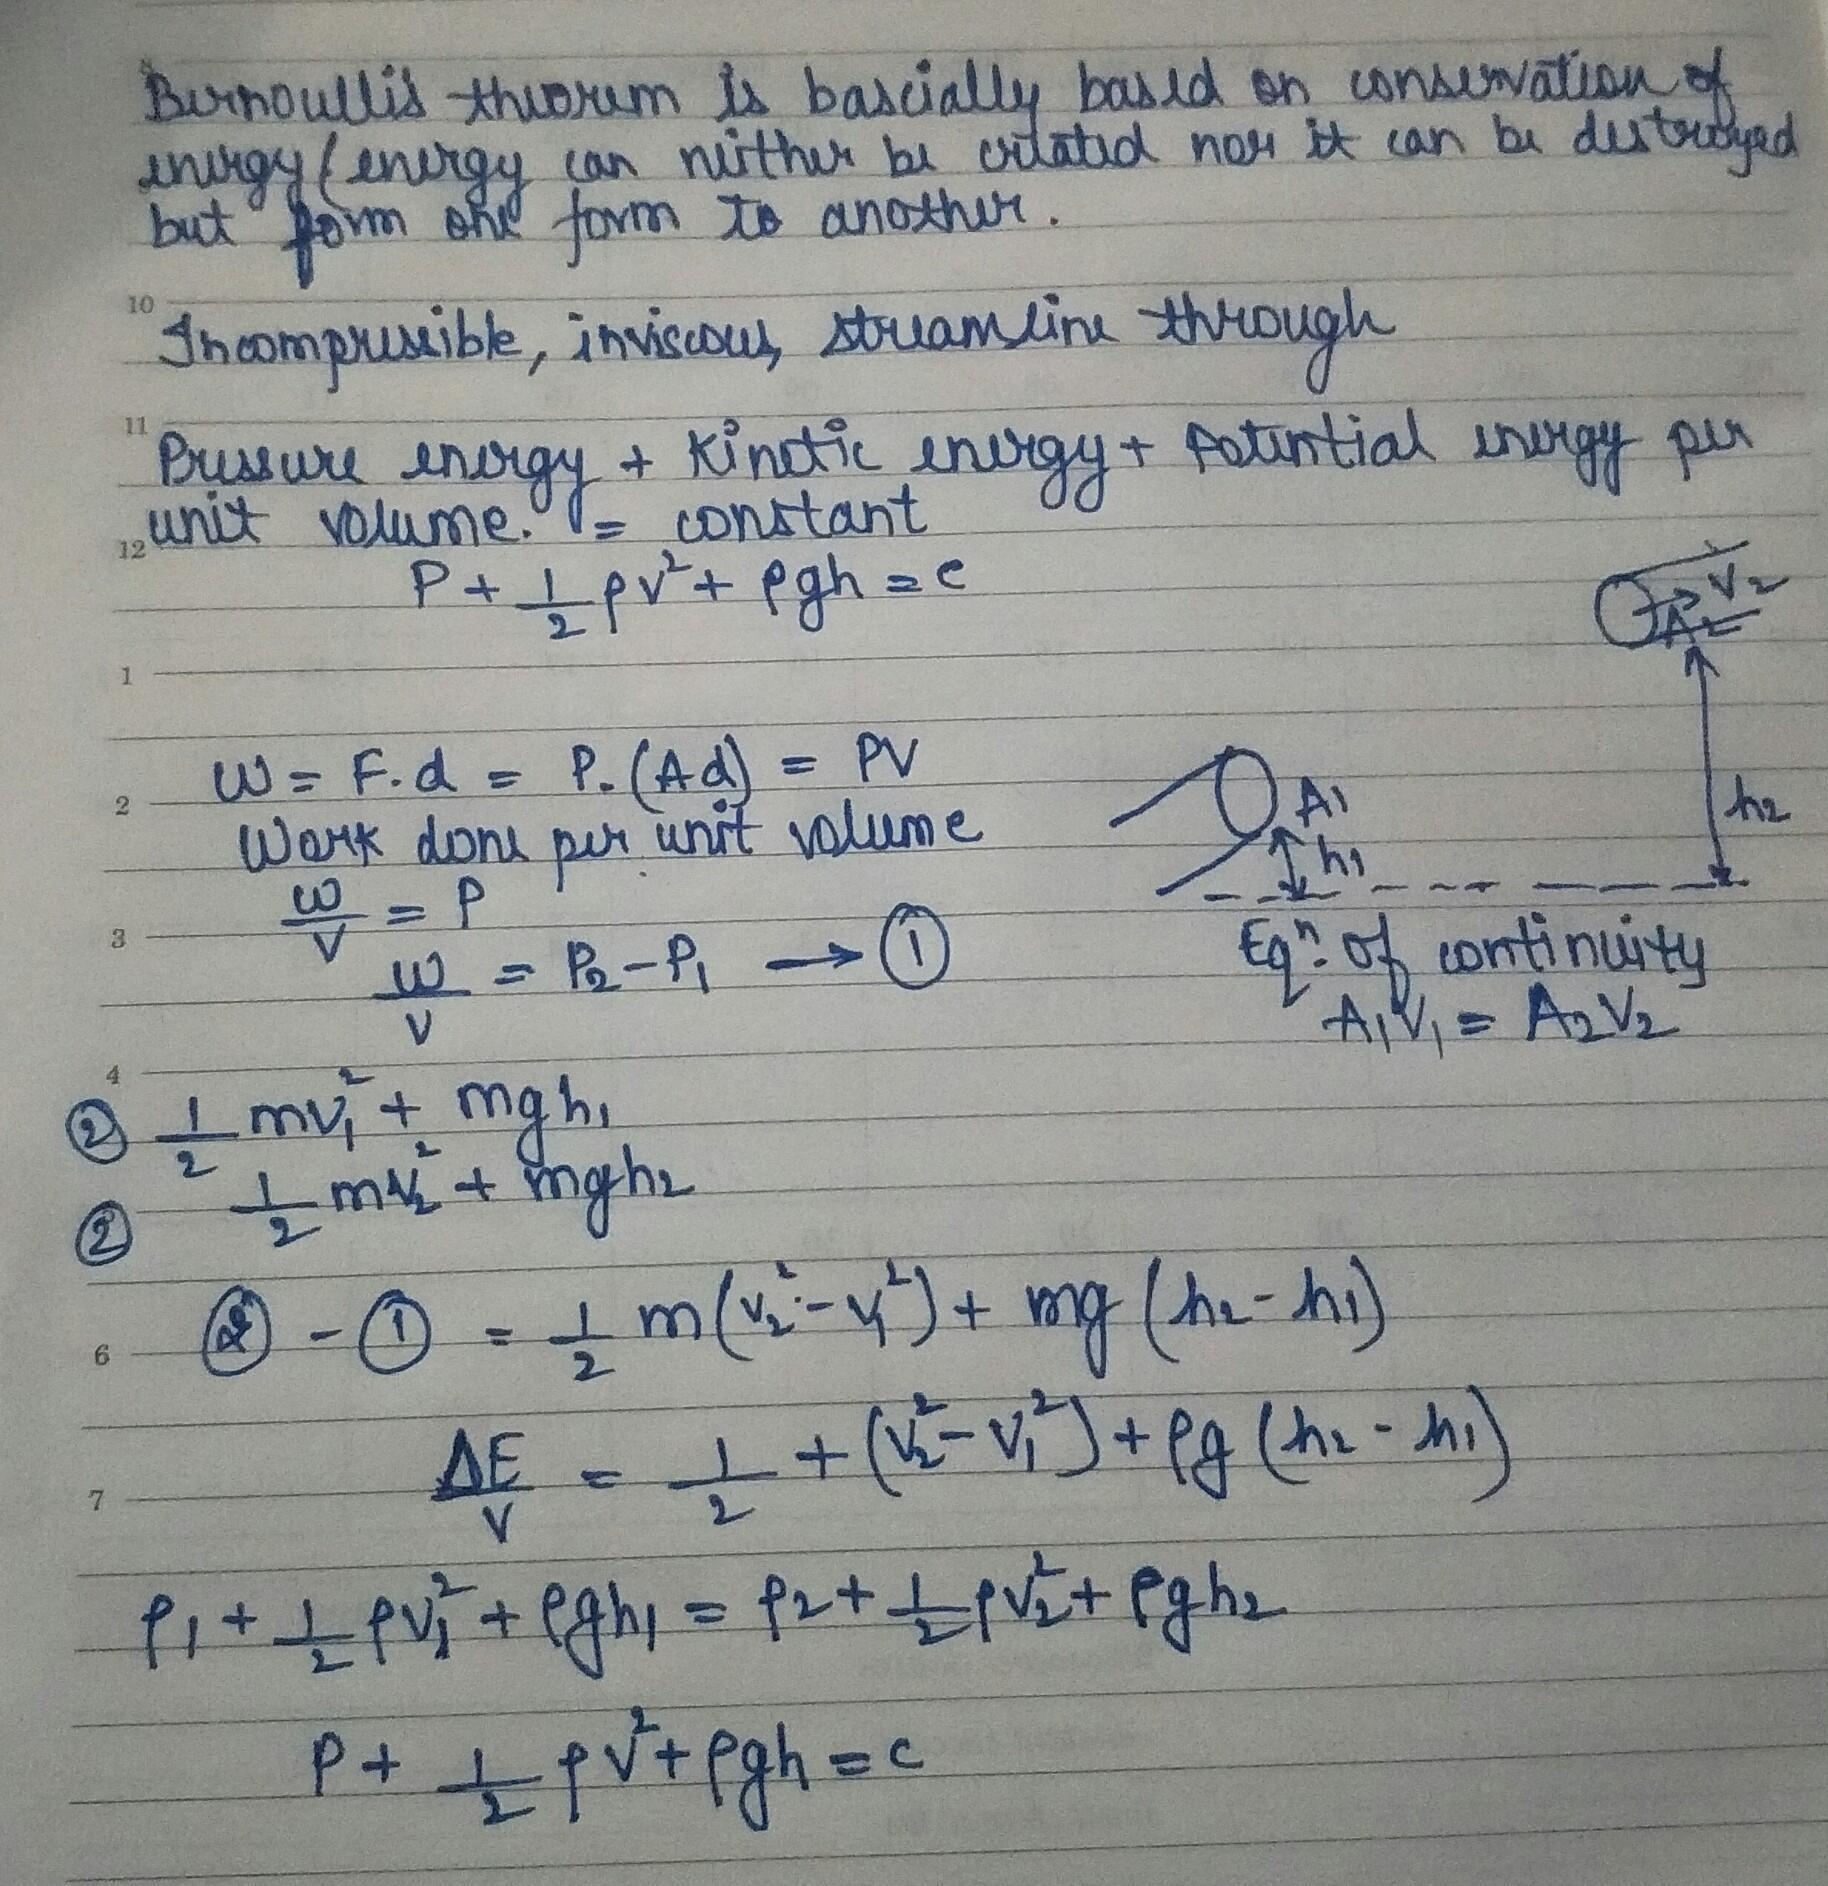 Bernoullis theorem is bascially based on conservation of
energy (energy can neither be created nor it can be destroyed
but form one form to another.
10
Incompressible, inviscous, streamline through
11
Pressure energy + Kinetic energy + Potential energy per
unit volume. = constant
12
P + 1/2 ρv² + ρgh = c
V2
A2
1
W = F.d = P.(Ad) = PV
2
A1
h2
Work done per unit volume
h1
W/V = P
3
W/V = P₂ - P₁ → ①
Eqⁿ. of continuity
A₁V₁ = A₂V₂
4
② 1/2 mv₁² + mgh₁
② 1/2 mv₂² + mgh₂
② - ① = 1/2 m(v₂² - v₁²) + mg (h₂ - h₁)
6
ΔE/V = 1/2 + (v₂² - v₁²) + ρg (h₂ - h₁)
7
P₁ + 1/2 ρv₁² + ρgh₁ = P₂ + 1/2 ρv₂² + ρgh₂
P + 1/2 ρv² + ρgh = c